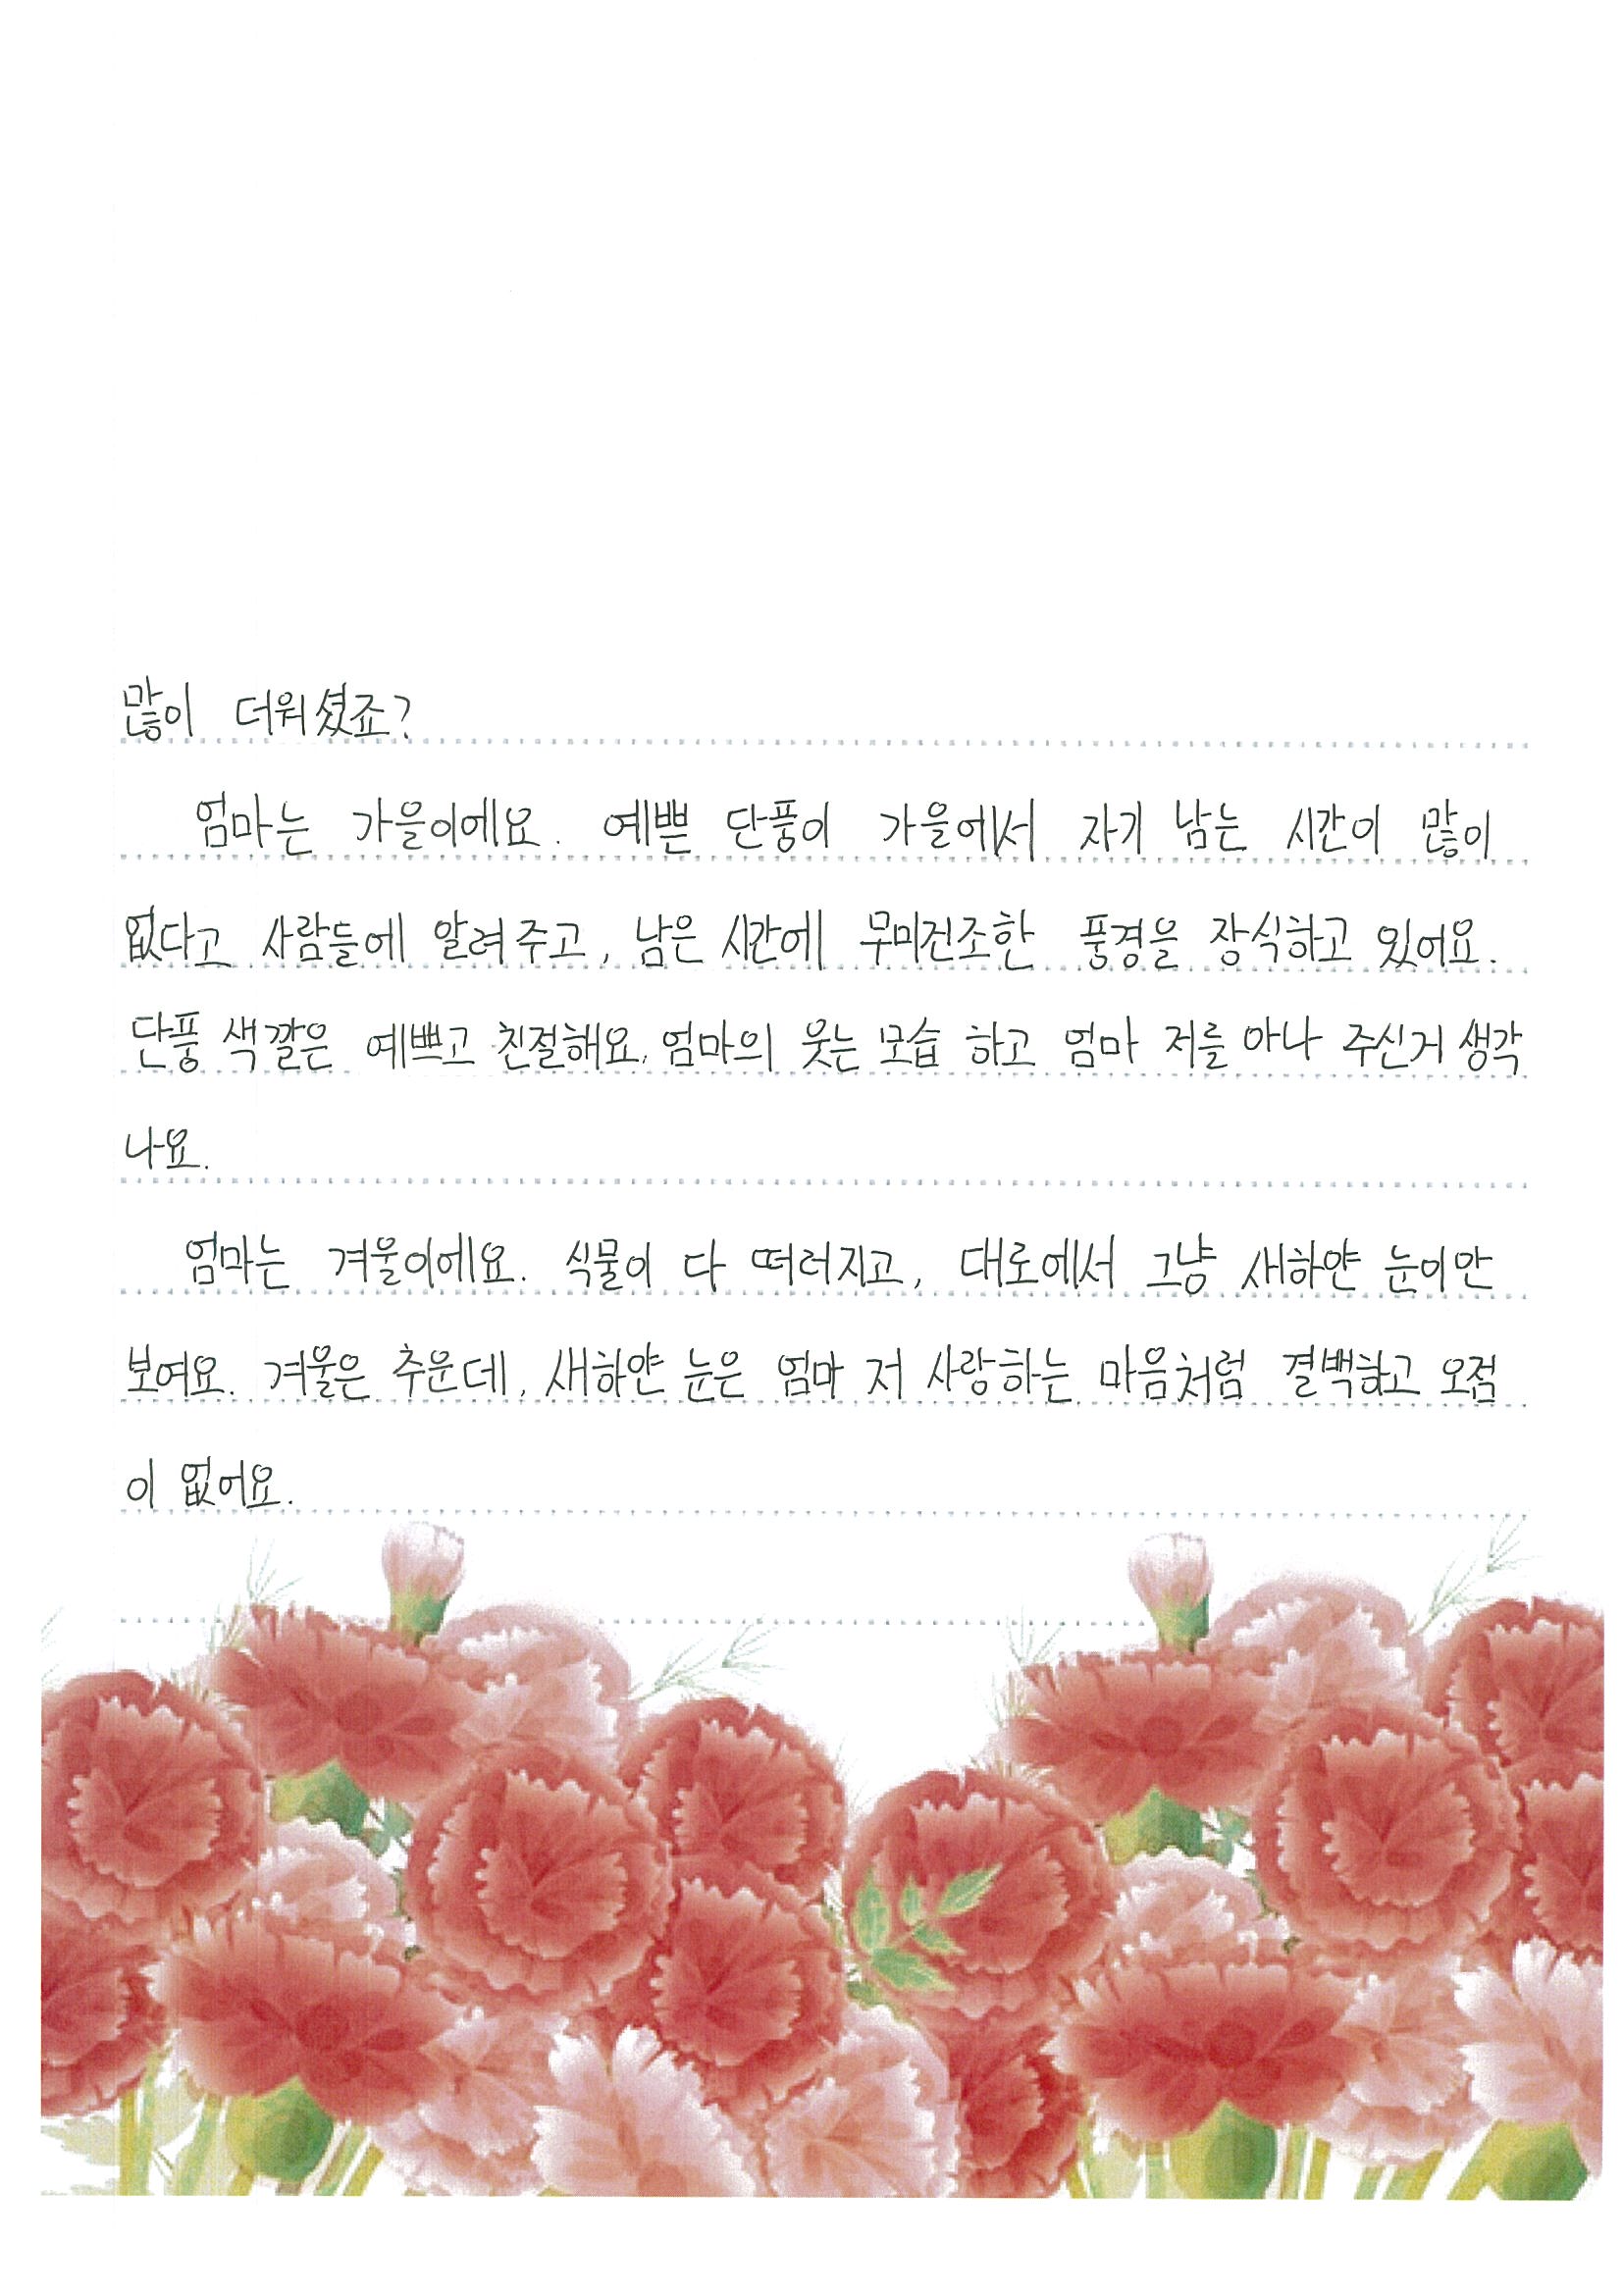 많이 더워셨죠?
엄마는 가을이에요. 예쁜 단풍이 가을에서 자기 남는 시간이 많이
없다고 사람들에 알려주고, 남은 시간에 무미건조한 풍경을 장식하고 있어요.
단풍 색깔은 예쁘고 친절해요. 엄마의 웃는 모습 하고 엄마 저를 아나 주신거 생각
나요.
엄마는 겨울이에요. 식물이 다 떠러지고, 대로에서 그냥 새하얀 눈이안
보여요. 겨울은 추운데, 새하얀 눈은 엄마 저 사랑하는 마음처럼 결백하고 오점
이 없어요.